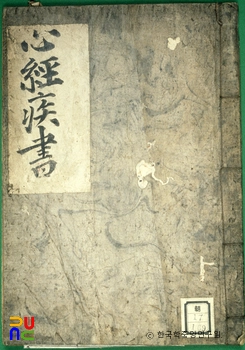 心經疾書
朝
UNUC
© 한국학중앙연구원